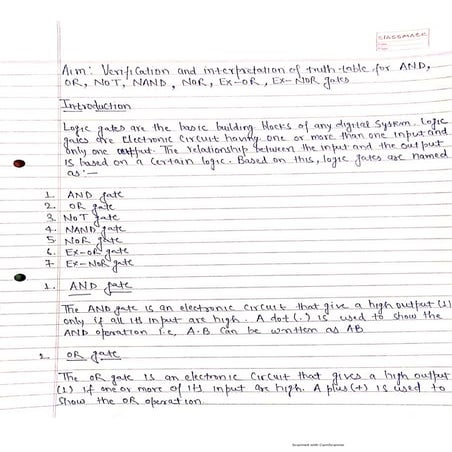 CLASSMATE
Aim: Verification and interpretation of truth-table for AND,
OR, NOT, NAND, NOR, Ex-OR, Ex-NOR gates
Introduction
Logic gates are the basic building blocks of any digital System. Logic
gates are Electronic Circuit having one or more than one input and
only one output. The relationship between the input and the output
is based on a Certain logic. Based on this, logic gates are named
as:—
1. AND gate
2. OR gate
3. NOT gate
4. NAND gate
5 NOR gate
6. Ex-OR gate
7 Ex-NOR gate
1. AND gate
The AND gate is an electronic circuit that give a high output (1)
only if all its input are high. A dot (.) is used to show the
AND operation i.e, A.B. Can be written as AB
2. OR gate
The OR gate is an electronic Circuit that gives a high output
(1) if one or more of its input are high. A plus (+) is used to
Show the OR operation.
Scanned with CamScanner